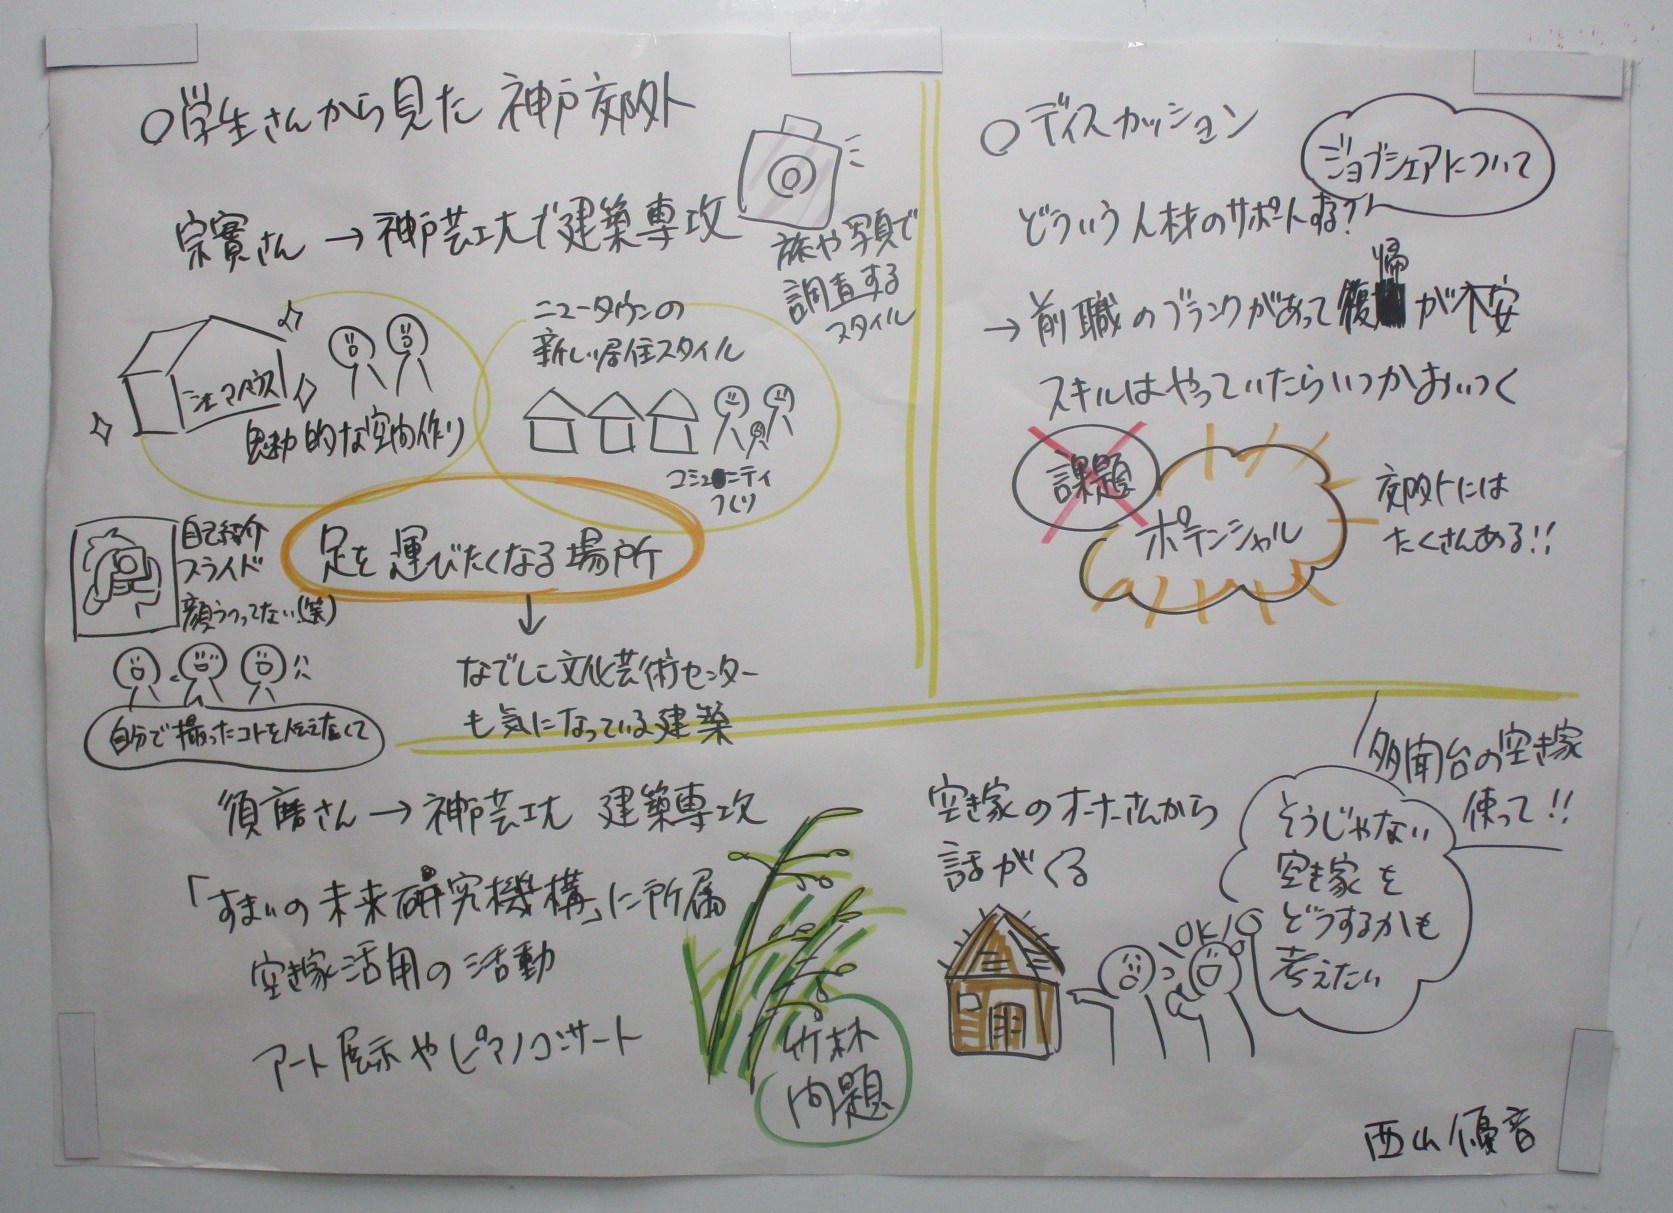 ○学生さんから見た 神戸 郊外
宗實さん → 神戸芸工大で建築専攻
旅や写真で
調査する
スタイル
シェアハウス
魅力的な空間作り
ニュータウンの
新しい居住スタイル
コミュニティ
づくり
足を運びたくなる場所
自己紹介
スライド
顔うつってない(笑)
自分で撮ったコトを伝えたくて
なでしこ文化芸術センター
も気になっている建築
須磨さん → 神戸芸工大 建築専攻
「すまいの未来研究機構」に所属
空き家活用の活動
アート展示やピアノコンサート
竹林
問題
○ディスカッション
ジョブシェアについて
どういう人材のサポートする?
→ 前職のブランクがあって復帰が不安
スキルはやっていたらいつかおいつく
課題
ポテンシャル
郊外には
たくさんある!!
空き家のオーナーさんから
話がくる
OK!
多聞台の空き家
使って!!
そうじゃない
空き家を
どうするかも
考えたい
西山優音